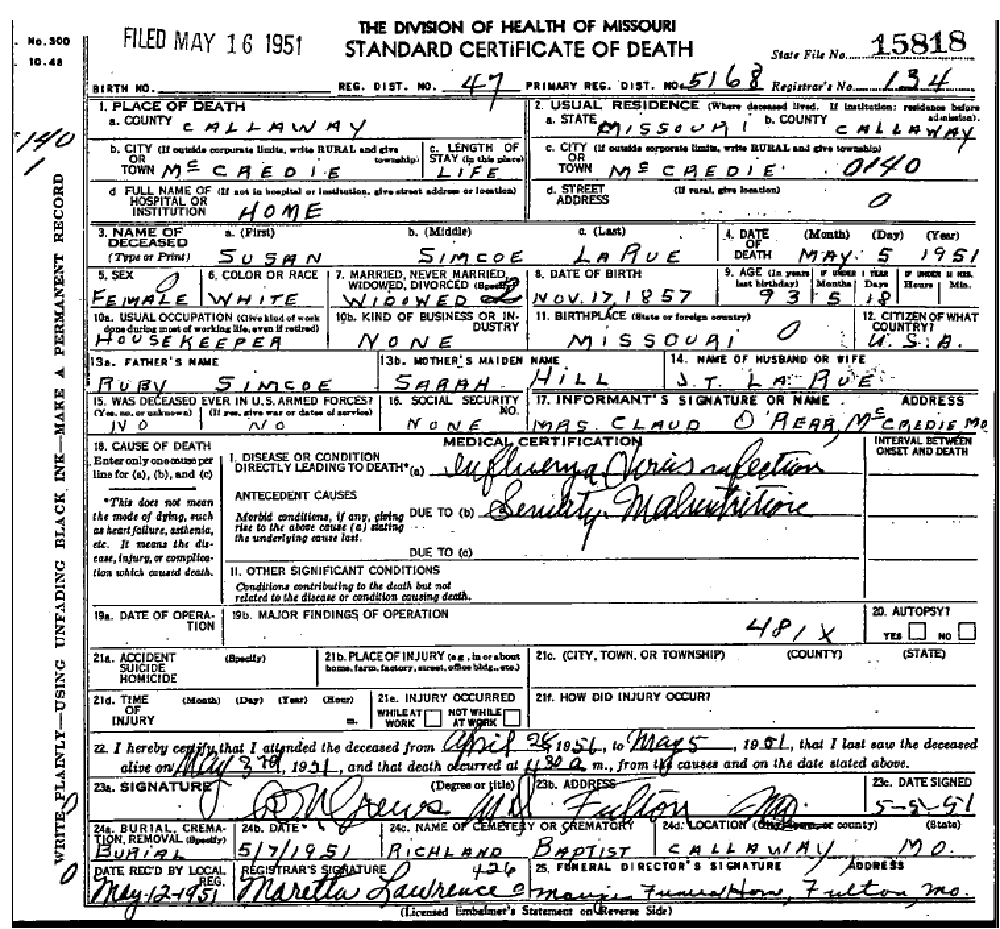 THE DIVISION OF HEALTH OF MISSOURI
STANDARD CERTIFICATE OF DEATH
No. 300
10.48
FILED MAY 16 1951
State File No. 15818
BIRTH NO. REG. DIST. NO. 47 PRIMARY REG. DIST. NO. 5168 Registrar's No. 134
140
1
WRITE PLAINLY—USING UNFADING BLACK INK—MAKE A PERMANENT RECORD
1. PLACE OF DEATH
a. COUNTY CALLAWAY
2. USUAL RESIDENCE (Where deceased lived. If institution: residence before admission).
a. STATE MISSOURI b. COUNTY CALLAWAY
b. CITY (If outside corporate limits, write RURAL and give township) OR TOWN McCREDIE
c. LENGTH OF STAY (in this place) LIFE
c. CITY (If outside corporate limits, write RURAL and give township) OR TOWN McCREDIE 0140
d. FULL NAME OF HOSPITAL OR INSTITUTION (If not in hospital or institution, give street address or location) HOME
d. STREET ADDRESS (If rural, give location) 0
3. NAME OF DECEASED (Type or Print) a. (First) SUSAN b. (Middle) SIMCOE c. (Last) LARUE
4. DATE OF DEATH (Month) (Day) (Year) MAY 5 1951
5. SEX FEMALE
6. COLOR OR RACE WHITE
7. MARRIED, NEVER MARRIED, WIDOWED, DIVORCED (Specify) WIDOWED 2
8. DATE OF BIRTH NOV. 17, 1857
9. AGE (In years last birthday) 93 IF UNDER 1 YEAR Months 5 Days 18 IF UNDER 24 HRS. Hours Min.
10a. USUAL OCCUPATION (Give kind of work done during most of working life, even if retired) HOUSEKEEPER
10b. KIND OF BUSINESS OR INDUSTRY NONE
11. BIRTHPLACE (State or foreign country) MISSOURI 0
12. CITIZEN OF WHAT COUNTRY? U.S.A.
13a. FATHER'S NAME RUBY SIMCOE
13b. MOTHER'S MAIDEN NAME SARAH HILL
14. NAME OF HUSBAND OR WIFE J.T. LA RUE
15. WAS DECEASED EVER IN U.S. ARMED FORCES? (Yes, no, or unknown) NO (If yes, give war or dates of service) NO
16. SOCIAL SECURITY NO. NONE
17. INFORMANT'S SIGNATURE OR NAME ADDRESS
MRS. CLAUD O'REAR, McCREDIE MO
18. CAUSE OF DEATH
Enter only one cause per line for (a), (b), and (c)
*This does not mean the mode of dying, such as heart failure, asthenia, etc. It means the disease, injury, or complication which caused death.
MEDICAL CERTIFICATION
INTERVAL BETWEEN ONSET AND DEATH
I. DISEASE OR CONDITION DIRECTLY LEADING TO DEATH* (a) Influenza Virus infection
ANTECEDENT CAUSES
Morbid conditions, if any, giving rise to the above cause (a) stating the underlying cause last.
DUE TO (b) Senility Malnutrition
DUE TO (c)
II. OTHER SIGNIFICANT CONDITIONS
Conditions contributing to the death but not related to the disease or condition causing death.
19a. DATE OF OPERATION
19b. MAJOR FINDINGS OF OPERATION
481X
20. AUTOPSY? YES NO
21a. ACCIDENT SUICIDE HOMICIDE (Specify)
21b. PLACE OF INJURY (e.g., in or about home, farm, factory, street, office bldg., etc.)
21c. (CITY, TOWN, OR TOWNSHIP) (COUNTY) (STATE)
21d. TIME OF INJURY (Month) (Day) (Year) (Hour) m.
21e. INJURY OCCURRED WHILE AT WORK NOT WHILE AT WORK
21f. HOW DID INJURY OCCUR?
22. I hereby certify that I attended the deceased from April 1951, to May 5, 1951, that I last saw the deceased
alive on May 3rd, 1951, and that death occurred at 4:30 a m., from the causes and on the date stated above.
23a. SIGNATURE (Degree or title) MD
23b. ADDRESS Fulton Mo.
23c. DATE SIGNED
24a. BURIAL, CREMATION, REMOVAL (Specify) BURIAL
24b. DATE 5/7/1951
24c. NAME OF CEMETERY OR CREMATORY RICHLAND BAPTIST
24d. LOCATION (City, town, or county) (State) CALLAWAY MO.
DATE REC'D BY LOCAL REG. May-12-1951
REGISTRAR'S SIGNATURE 426 Maretta Lawrence
25. FUNERAL DIRECTOR'S SIGNATURE ADDRESS
Funeral Home, Fulton, Mo.
(Licensed Embalmer's Statement on Reverse Side)